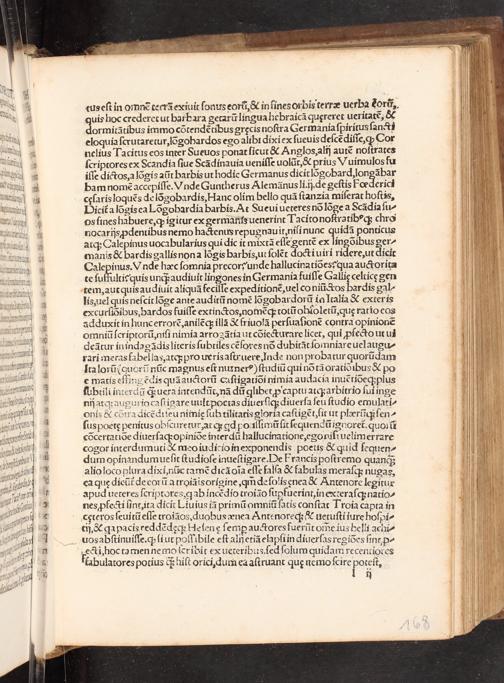 tus est in omnē terrā exiuit sonus eorū, & in fines orbis terræ uerba eorū,
quis hoc crederet ut barbara getarū lingua hebraicā quęreret ueritatē, &
dormitātibus immo cōtendētibus gręcis nostra Germania spiritus sancti
eloquia scrutaretur, lōgobardos ego alibi dixi ex sueuis descēdisse, ꝙ Cor
nelius Tacitus eos inter Sueuos ponat sicut & Anglos, alij autē nostrates
scriptores ex Scandia siue Scādinauia uenisse uolūt, & prius Vuimulos fu
isse dictos, a lōgis aūt barbis ut hodie Germanus dicit lōgbard, longābar
bam nomē accepisse. Vnde Guntherus Alemānus li. ij. de gestis Fœderici
cęsaris loquēs de lōgobardis, Hanc olim bello quā stanzia miserat hostis,
Dicit a lōgis ea Lōgobardia barbis. At Sueui ueteres nō lōge a Scādia su/
os fines habuere, ꝙ igitur ex germanis uenerint Tacito nostratibꝰꝙ chro
nocarijs, pdentibus nemo hactenus repugnauit, nisi nunc quidā ponticus
atꝙ Calepinus uocabularius qui dicit mixtā esse gentē ex lingōibus ger-
manis & bardis gallis non a lōgis barbis, ut solēt docti uiri ridere, ut dicit
Calepinus. Vnde hæc somnia precor? unde hallucinatiōes? qua auctorita
te suffultis? quis unꝙ audiuit lingones in Germania fuisse Gallię celticę gen
tem, aut quis audiuit aliquā fecisse expeditionē, uel cōniūctos bardis gal-
lis, uel quis nescit lōge ante auditū nomē lōgobardorū in Italia & exteris
excursiōibus, bardos fuisse extinctos, nomēꝙ totū obsoletū, que ratio eos
adduxit in hunc errorē, anilēꝙ illā & friuolā persuasionē contra opinionē
omniū scriptorū, nisi nimia arrogātia ut coiecturare licet, qui pfecto ut ui
deātur in indagādis literis subtiles cēsores nō dubitāt somniare uel augu-
rari meras fabellas, atꝙ pro ueris astruere, Inde non probatur quorūdam
Italorū (quorū nūc magnus est numerꝰ) studiū qui nō tā oratiōibus & po
ematis effingēdis quā auctorū castigatiōi nimia audacia inuētiōeꝙ plus
subtili interdū ꝙ uera intendūt, nā dū qlibet, p captu atꝙ arbitrio sui inge
nij atꝙ augurio castigare uult poetas diuersiꝙ diuersa seu studio emulati-
onis & cōtradicēdi seu nimię subtilitatis gloria castigēt, fit ut plærūꝙ sen-
sus poetę penitus obscuretur, atꝙ qd potissimū sit sequendū ignoref. quorū
cōcertatiōe diuersaꝙ opiniōe interdū hallucinatione, ego nisi uelim errare
cogor interdum uti & meo iudicio in exponendis poetis & quid sequen-
dum opinandumue sit studiose inuestigare. De Francis postremo quanꝙ
alio loco plura dixi, nūc tamē dicā oīa esse falsa & fabulas merasꝙ nugas,
ea quę dicūt de eorū a troia is origine, qm̄ de solis ęnea & Antenore legitur
apud ueteres scriptores, q ab incēdio troiāo supfuerint, in exterasꝙ natio-
nes, pfecti sint, ita dicit Liuius iā primū omniū satis constat Troia capta in
cęteros seuitū esse troianos, duobus ænea Antenoreꝙ & uetusti iure hospi-
tij, & qa pacis reddēdęꝙ Helenę semp auctores fuerūt ome ius belli achi-
uos abstinuisse. ꝙ si ut possibile est alij etiā elapsi in diuersas regiōes sint, p-
fecti, hoc tamen nemo scribit ex ueteribus, sed solum quidam recentiores
fabulatores potius ꝙ historici, dum ea astruant quę nemo scire potest,
l ij
168